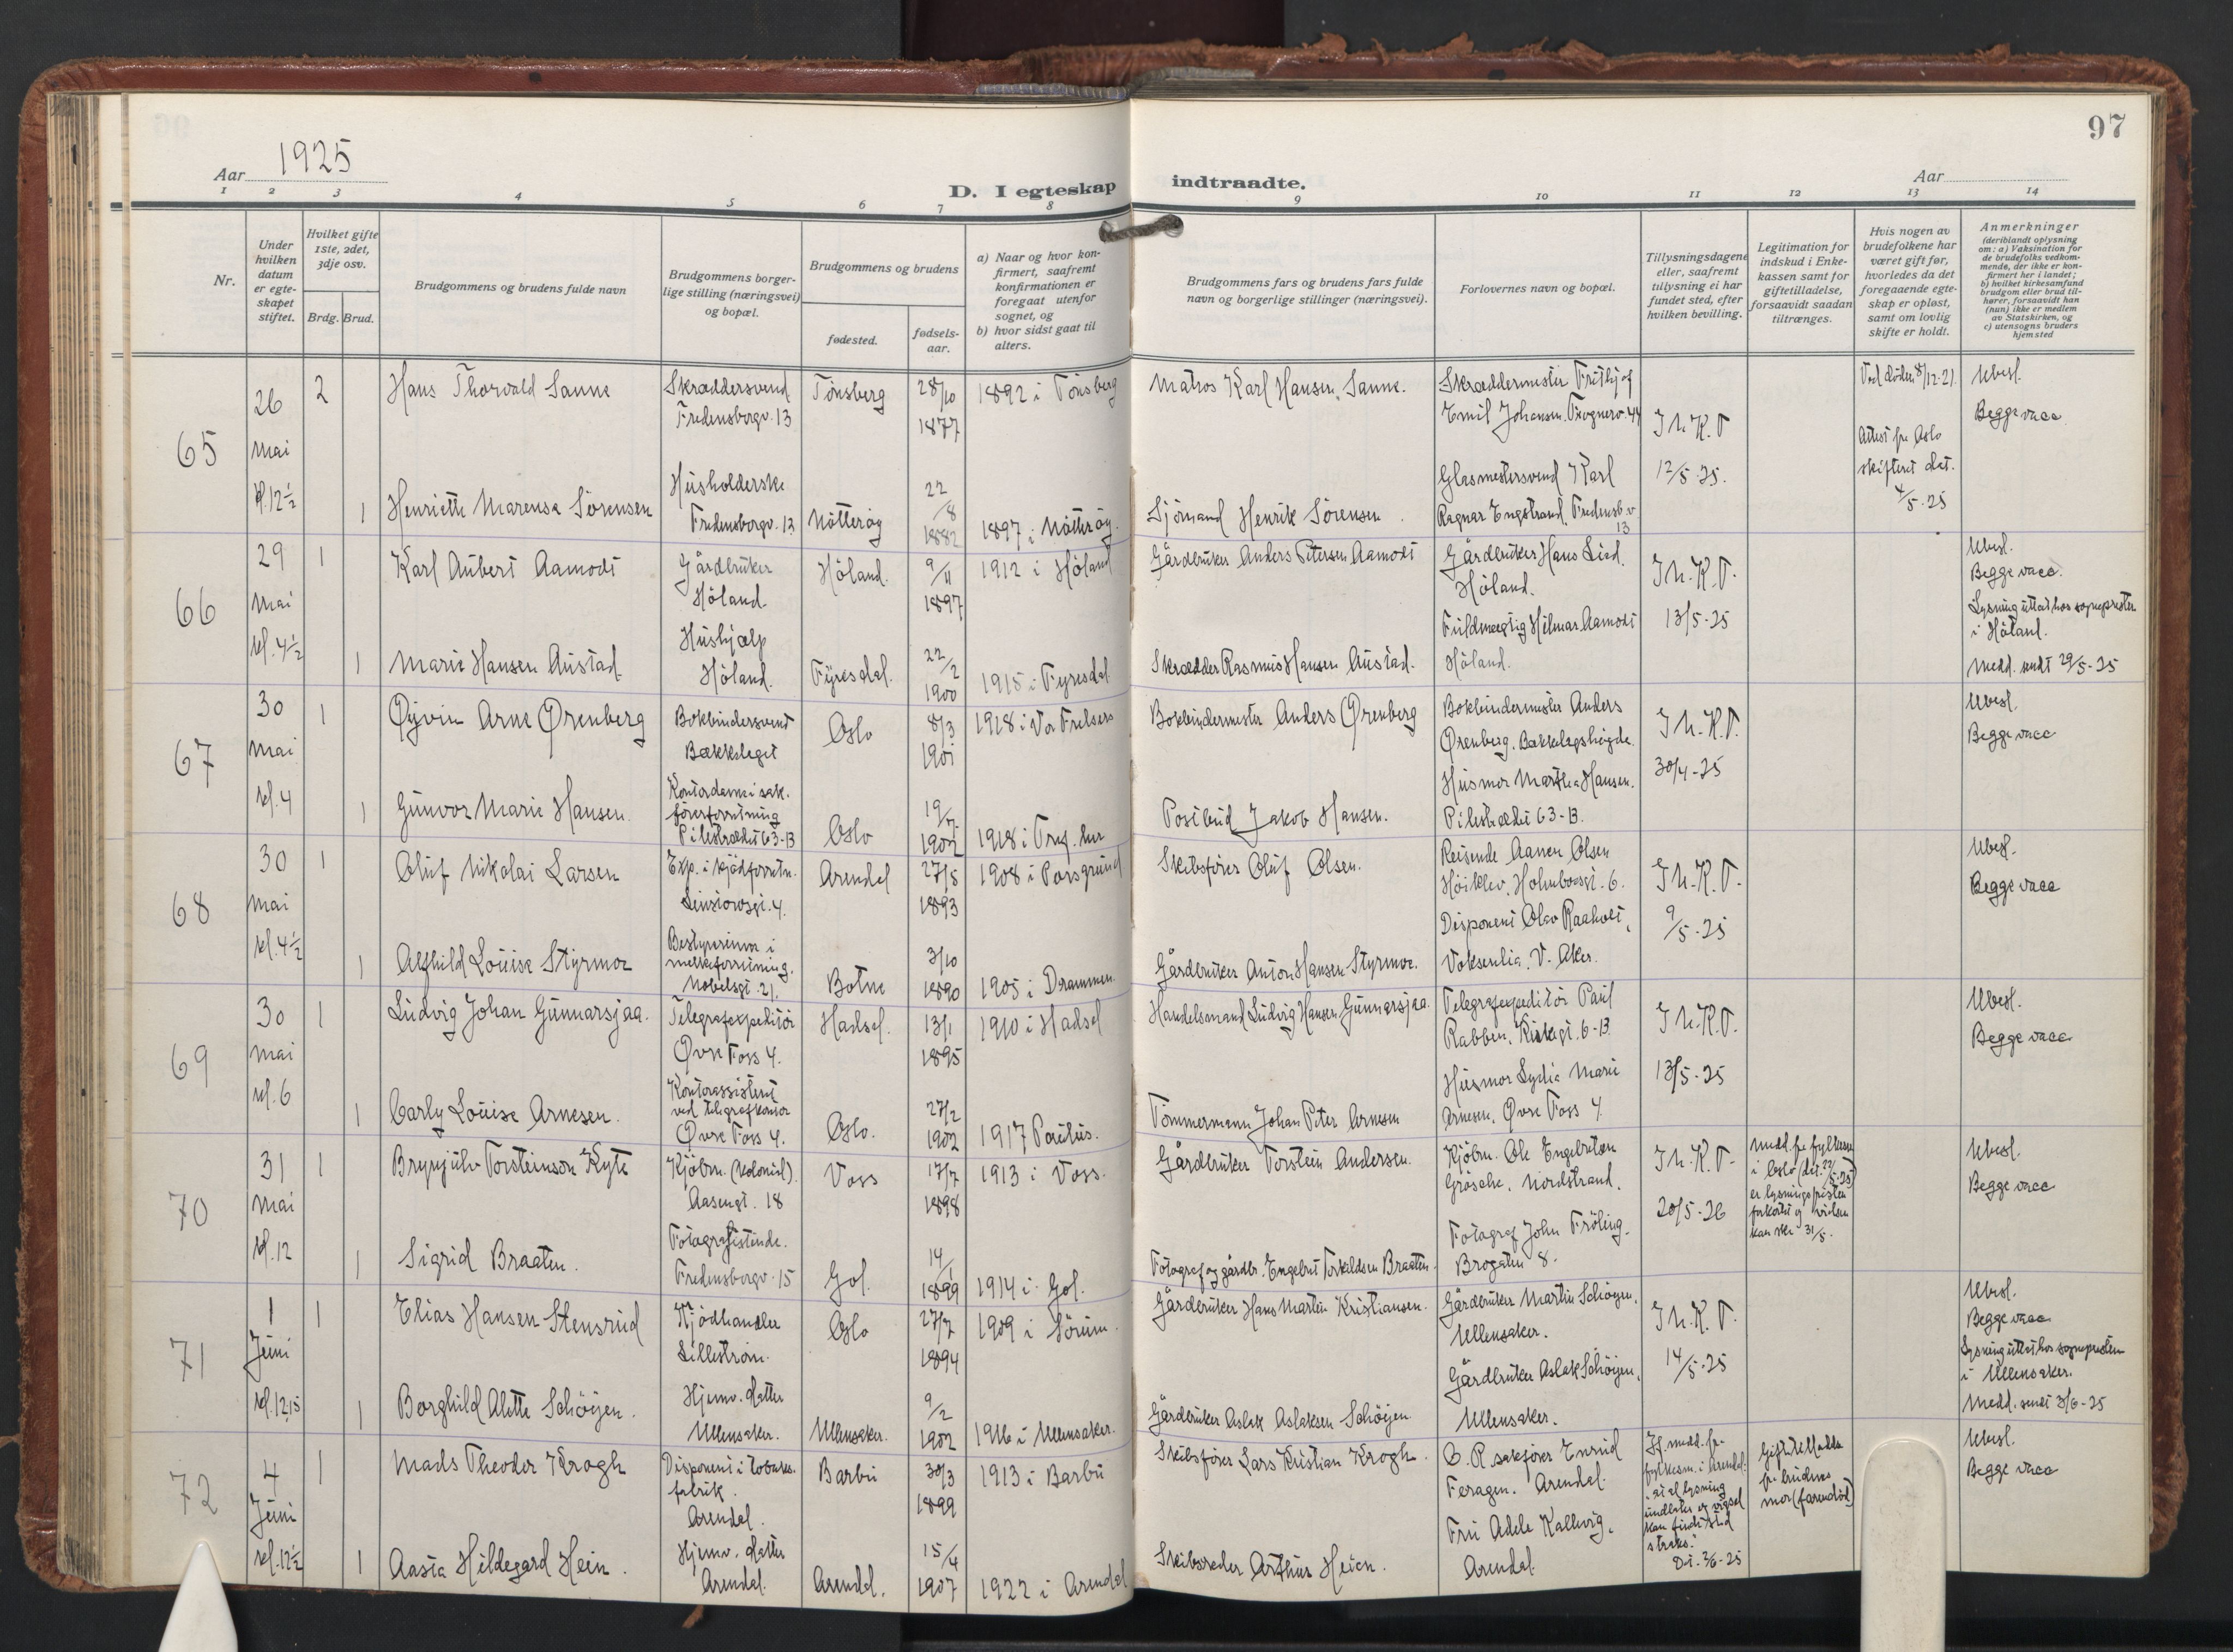 97
Aar 1925
D. I egteskap indtraadte.
Aar
1 2 3 4 5 6 7 8 9 10 11 12 13 14
Nr.
Under hvilken datum er egteskapet stiftet.
Hvilket gifte 1ste, 2det, 3dje osv.
Brdg. Brud.
Brudgommens og brudens fulde navn
Brudgommens borgerlige stilling (næringsvei) og bopæl.
Brudgommens og brudens
fødested.
fødselsaar.
a) Naar og hvor konfirmert, saafremt konfirmationen er foregaat utenfor sognet, og
b) hvor sidst gaat til alters.
Brudgommens fars og brudens fars fulde navn og borgerlige stillinger (næringsvei).
Forlovernes navn og bopæl.
Tillysningsdagene eller, saafremt tillysning ei har fundet sted, efter hvilken bevilling.
Legitimation for indskud i Enkekassen samt for giftetilladelse, forsaavidt saadan tiltrænges.
Hvis nogen av brudefolkene har været gift før, hvorledes da det foregaaende egteskap er opløst, samt om lovlig skifte er holdt.
Anmerkninger
(deriblandt oplysning om: a) Vaksination for de brudefolks vedkommende, der ikke er konfirmert her i landet; b) hvilket kirkesamfund brudgom eller brud tilhører, forsaavidt han (hun) ikke er medlem av Statskirken, og c) utensogns bruders hjemsted
65
26 Mai kl. 12½
2
Hans Thorvald Sanne
Skræddersvend Fredensborgv. 13
Tönsberg
28/10 1877
1892 i Tönsberg
Matros Karl Hansen Sanne.
Skræddermester Frithjof Emil Johansen. Frognerv. 44
J. N. K. P. 12/5-25.
Ved döden 8/12-21.
Attest fra Oslo skifteret dat. 4/5-25
Ubesl.
Begge vacc.
1
Henriette Marensa Sörensen
Husholderske Fredensborgv. 13
Nötteröy
22/8 1882
1897 i Nötteröy.
Sjömand Henrik Sörensen.
Glasmestersvend Karl Ragnar Engstrand, Fredensb.v. 13
66
29 Mai kl. 4½
1
Karl Aubert Aamodt
Gårdbruker Höland.
Höland.
9/11 1897
1912 i Höland
Gårdbruker Anders Petersen Aamodt
Gårdbruker Hans Lied. Höland.
J. N. K. P. 13/5-25
Ubesl.
Begge vacc.
Lysning uttat hos sognepresten i Höland.
Medd. sendt 29/5-25
1
Marie Hansen Austad
Hushjælp Höland.
Fyresdal.
22/2 1900
1915 i Fyresdal
Skrædder Rasmus Hansen Austad.
Fuldmægtig Hilmar Aamodt Höland.
67
30 Mai kl. 4
1
Øyvin Arne Ørenberg
Bokbindersvend Bækkelaget
Oslo
8/3 1901
1918 i Vor Frelsers
Bokbindermester Anders Ørenberg
Bokbindermester Anders Ørenberg. Bækkelagshögda.
J. N. K. P. 30/4-25
Ubesl.
Begge vacc
1
Gunvor Marie Hansen.
Kontordame i sakförerforretning Pilestrædet 63-B
Oslo
19/7 1902
1918 i Tref. her
Postbud Jakob Hansen.
Husmor Marthea Hansen. Pilestrædet 63-B.
68
30 Mai kl. 4½
1
Oluf Nikolai Larsen
Exp. i kjödforretn.
Arendal
27/8 1893
1908 i Porsgrund
Skibsförer Oluf Olsen.
Reisende Aanen Olsen Höiklev, Holmboesgt. 6.
J. N. K. P. 9/5-25
Ubesl.
Begge vacc
1
Alfhild Louise Styrmoe
Bestyrerinne i melkeforretning. Nobelsgt. 21.
Botne
3/10 1890
1905 i Drammen.
Gårdbruker Anton Hansen Styrmoe.
Disponent Olav Raaholt, Voksenlia. V. Aker.
69
30 Mai kl. 6
1
Ludvig Johan Gunnarsjaa.
Telegrafexpeditör Øvre Foss 4.
Hadsel.
13/1 1895
1910 i Hadsel
Handelsmand Ludvig Hansen Gunnarsjaa.
Telegrafexpeditör Paul Rabben, 6-B
J. N. K. P. 13/5-25
Ubesl.
Begge vacc
1
Carly Louise Arnesen.
Kontorassistent ved telegrafkontor Øvre Foss 4.
Oslo.
27/2 1902
1917 Paulus.
Tömmermann Johan Peter Arnesen
Husmor Lydia Marie Arnesen, Øvre Foss 4.
70
31 Mai kl. 12
1
Brynjulv Torsteinson Kyte
Kjöbm. (kolonial). Aasengt. 18
Voss
17/7 1898
1913 i Voss.
Gårdbruker Torstein Andersen.
Kjöbm. Ole Engebretsen Nordstrand.
J. N. K. P. 20/5-26
Medd. fra fylkesm. i Oslo (dat. 22/5-25) er lysningsfristen forkortet og vielsen kan ske 31/5.
Ubesl.
Begge vacc
1
Sigrid Braaten.
Fredensborgv. 15
Gol.
14/1 1899
1914 i Gol.
Fotograf og gårdbr. Engebret Torkildsen Braaten.
Fotograf John Fröling. Brogaten 8.
71
1 Juni kl. 12,15
1
Elias Hansen Stensrud
Kjödhandler Lilleström.
Oslo
27/7 1894
1909 i Sörum.
Gårdbruker Hans Martin Kristiansen.
Gårdbruker Martin Schöyen, Ullensaker.
J. N. K. P. 14/5-25
Ubesl.
Begge vacc
Lysning uttat hos sognepresten i Ullensaker.
Medd. sendt 3/6-25
1
Borghild Alette Schöyen.
Hjemv. datter Ullensaker.
Ullensaker.
9/2 1902
1916 i Ullensaker.
Gårdbruker Aslak Aslaksen Schöyen.
Gårdbruker Aslak Schöyen, Ullensaker.
72
4 Juni kl. 12½
1
Mads Theodor Krogh
Disponent i tobaksfabrik. Arendal.
Barbu
30/3 1899
1913 i Barbu
Skibsförer Lars Kristian Krogh.
O. R. sakförer Enrud Feragen. Arendal.
Jf. medd. fra fylkesm. i Arendal: at al lysning undlates og vigsel kan finde sted straks. D.t. 2/6-25
Giftetilladelse fra brudens mor (faren död)
Ubesl.
Begge vacc
1
Aasta Hildegard Hein.
Hjemv. datter Arendal.
Arendal.
15/4 1907
1922 i Arendal
Skibsreder Arthur Heien.
Fru Adele Kallevig. Arendal.